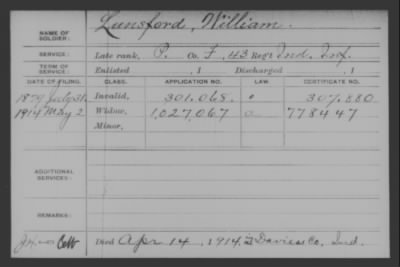 NAME OF SOLDIER: Lunsford, William.
SERVICE: Late rank, P. Co. F, 43 Reg't Ind. Inf.
TERM OF SERVICE: Enlisted , 1 Discharged , 1
DATE OF FILING. CLASS. APPLICATION NO. LAW. CERTIFICATE NO.
1879 July 31. Invalid, 301.068. 307.880
1914 May 2 Widow, 1,027,067 778447
Minor,
ADDITIONAL SERVICES:
REMARKS:
Died Apr 14, 1914, Daviess Co, Ind.